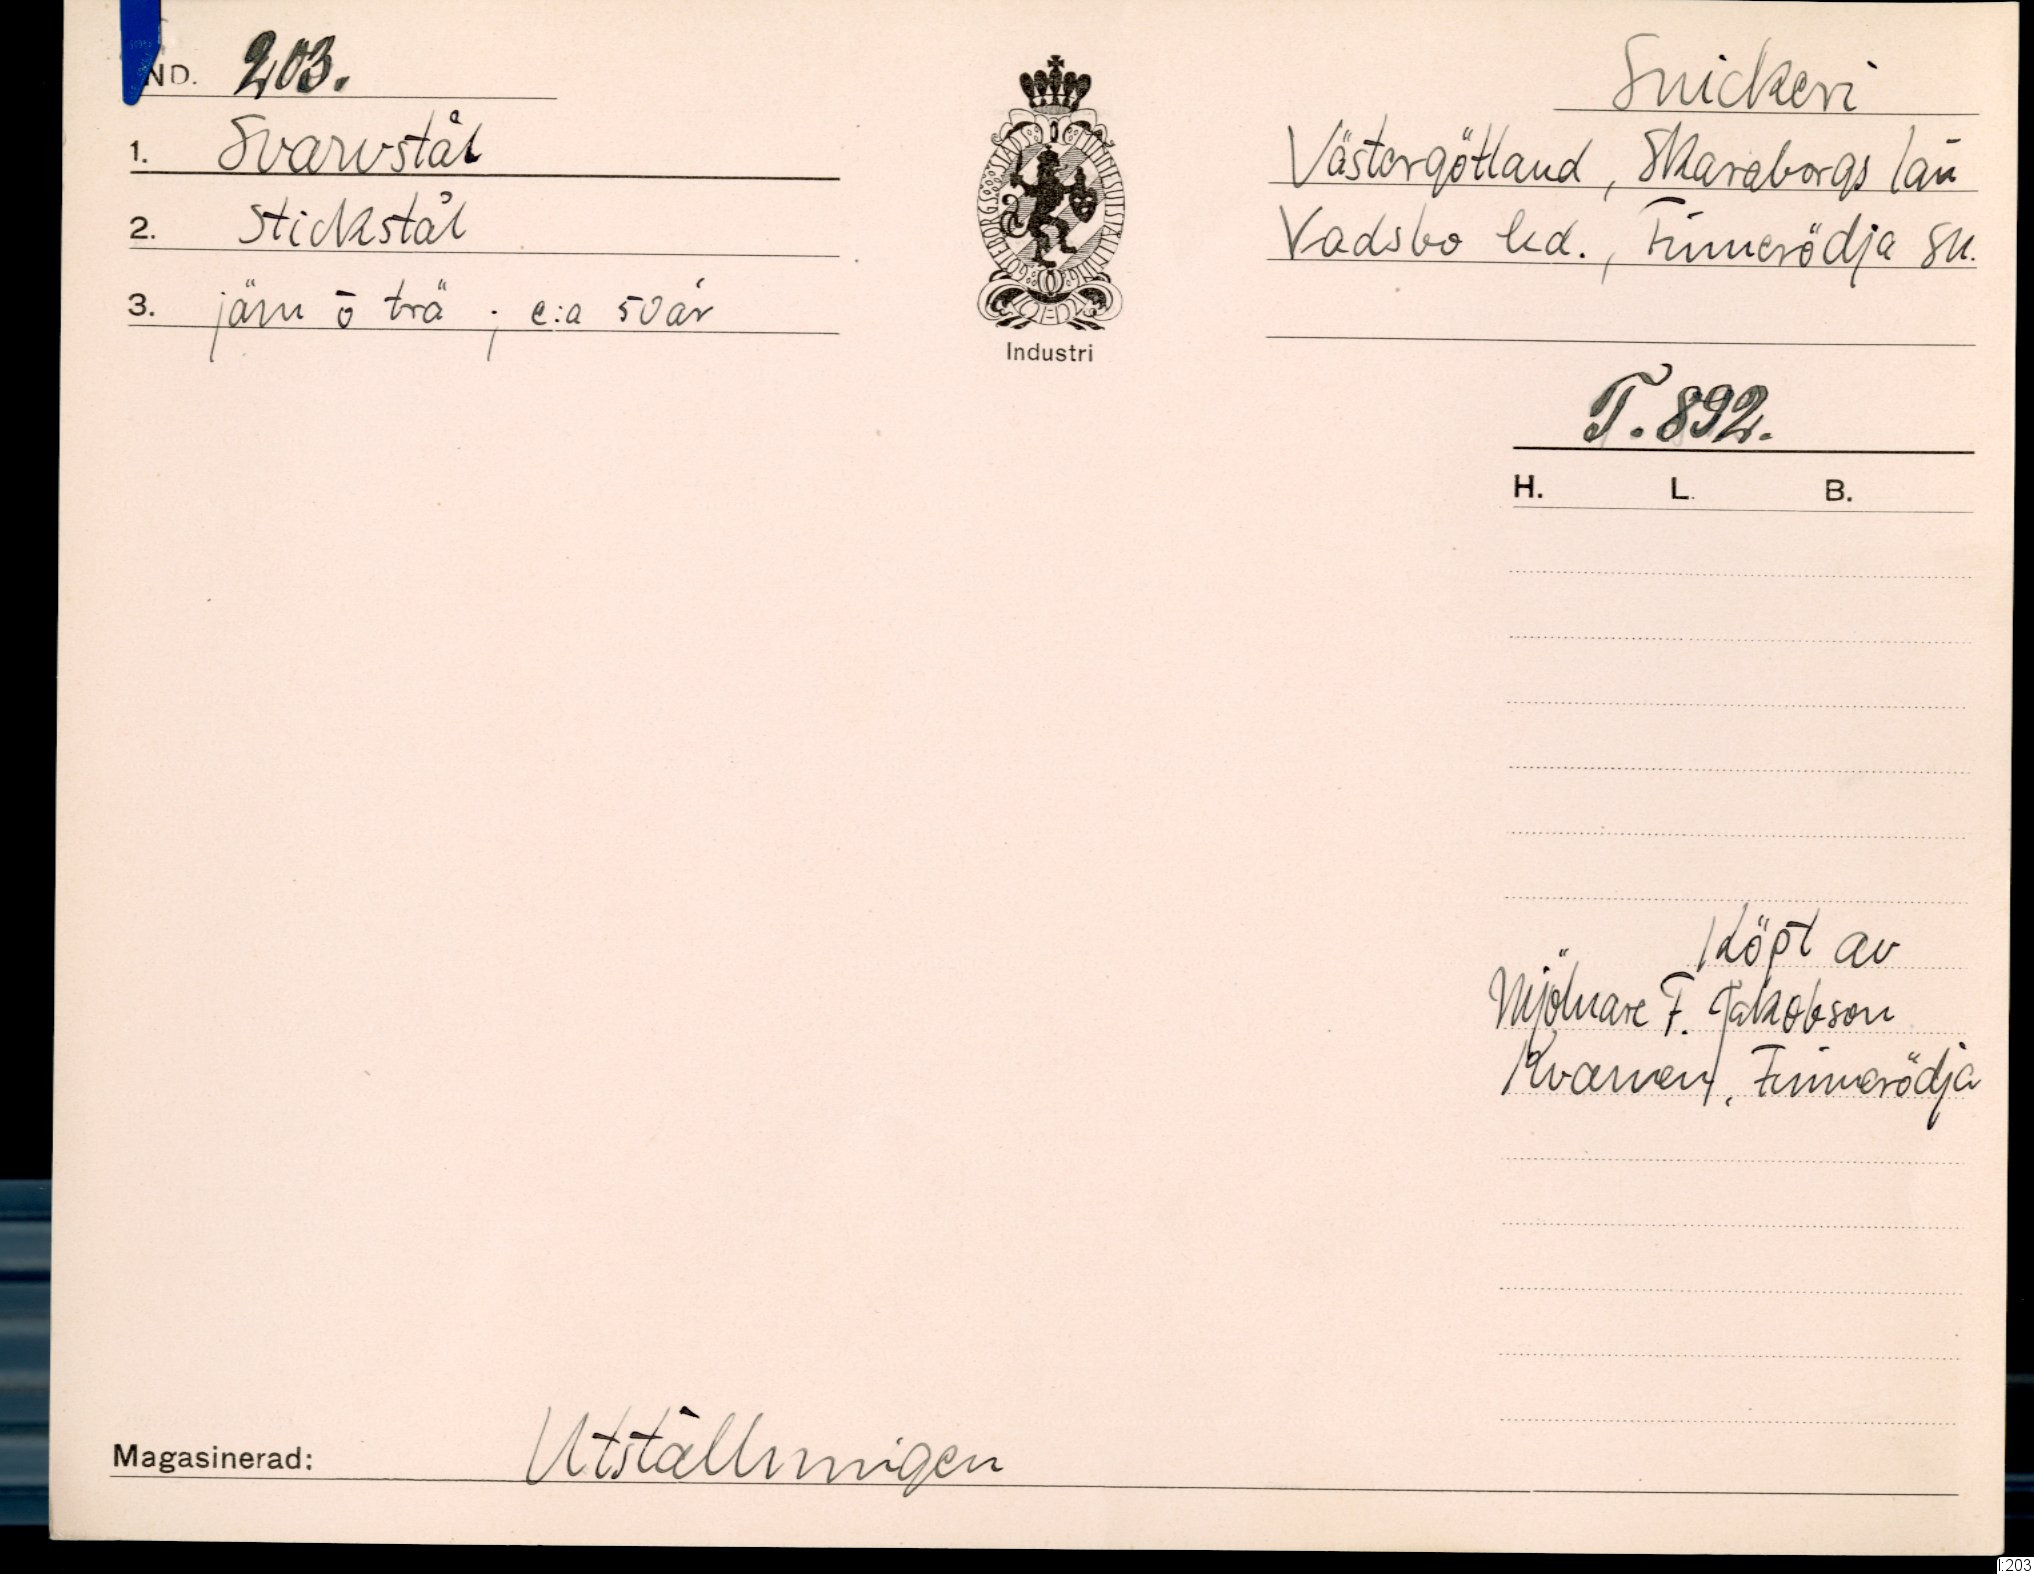 IND. 203.
1. Svarvstål
2. Stickstål
3. järn ō trä ; c:a 50 år
GÖTEBORGS STADS MINNESUTSTÄLLNING
Industri
Snickeri
Västergötland, Skaraborgs län
Vadsbo hd., Finnerödja sn.
T. 892.
H. L. B.
Köpt av
Mjölnare F. Jakobson
Kvarnen, Finnerödja
Magasinerad: Utställningen
I:203